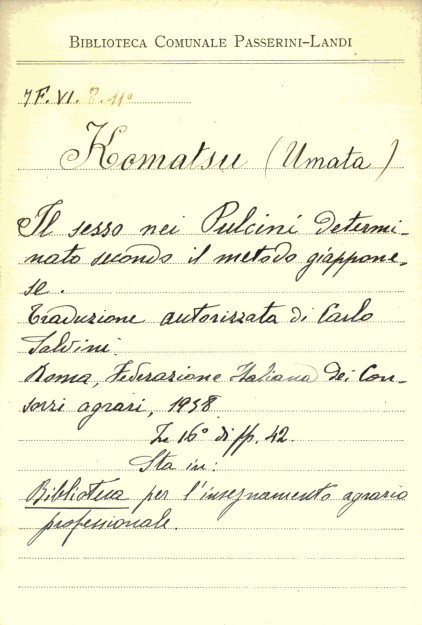 BIBLIOTECA COMUNALE PASSERINI-LANDI
7F. VI. 8. 11º
Komatsu (Umata)
Il sesso nei Pulcini determi-
nato secondo il metodo giappone-
se.
Traduzione autorizzata di Carlo
Salvini.
Roma, Federazione Italiana dei Con-
sorzi agrari, 1938
In 16° di pp. 42.
Sta in:
Biblioteca per l'insegnamento agrario
professionale.